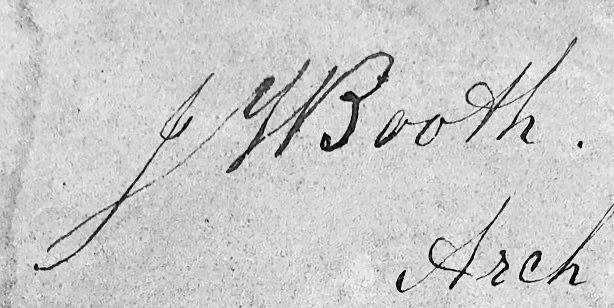 J W Booth.
Arch